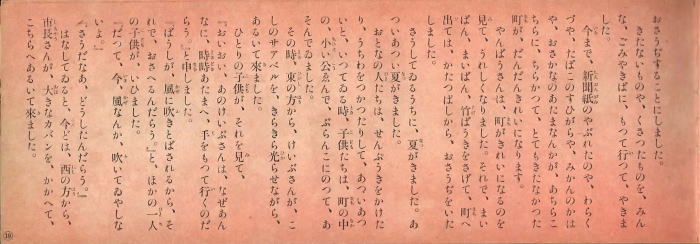 おさうぢすることにしました。
きたないものや、くさつたものを、みん
な、ごみやきばに、もつて行つて、やきま
した。
今まで、新聞紙のやぶれたのや、わらく
づや、たばこのすひがらや、みかんのかは
や、おさかなのあたまなんかが、あちらこ
ちらに、ちらかつて、とてもきたなかつた
町が、だんだんきれいになりました。
やんばうさんは、町がきれいになるのを
見て、うれしくなりました。それで、まい
ばん、まいばん、竹ばうきをさげて、町へ
出ては、かたつぱしから、おさうぢをいた
しました。
さうしてゐるうちに、夏がきました。あ
ついあつい夏がきました。
おとなの人たちは、せんぷうきをかけた
り、うちわをつかつたりして、あついあつ
いと、いつてゐる時、子供たちは、町の中
の、小い公ゑんで、ぶらんこにのつて、あ
そんでゐました。
その時、東の方から、けいぶさんが、こ
しのサアベルを、きらきら光らせながら、
あるいて來ました。
ひとりの子供が、それを見て、
『おいおい、あのけいぶさんは、なぜあん
なに、時時あたまへ、手をもつて行くのだ
らう。』と申しました。
『ばうしが、風に吹きとばされるから、そ
れで、おさへるんだらう。』と、ほかの一人
の子供が、いひました。
『だつて、今、風なんか、吹いてゐやしな
いよ。』
『さうだなあ、どうしたんだらう。』
はなしてゐると、今どは、西の方から、
市長さんが、大きなカバンを、かかへて、
こちらへあるいて來ました。
10